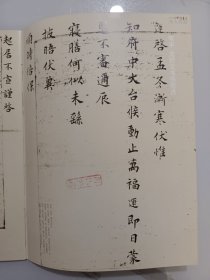 啓孟冬漸寒伏惟
知府中大台候動止萬福運即日蒙
恩不審邇辰
寢膳何似未繇
披晤伏冀
保
起居不宣謹啓